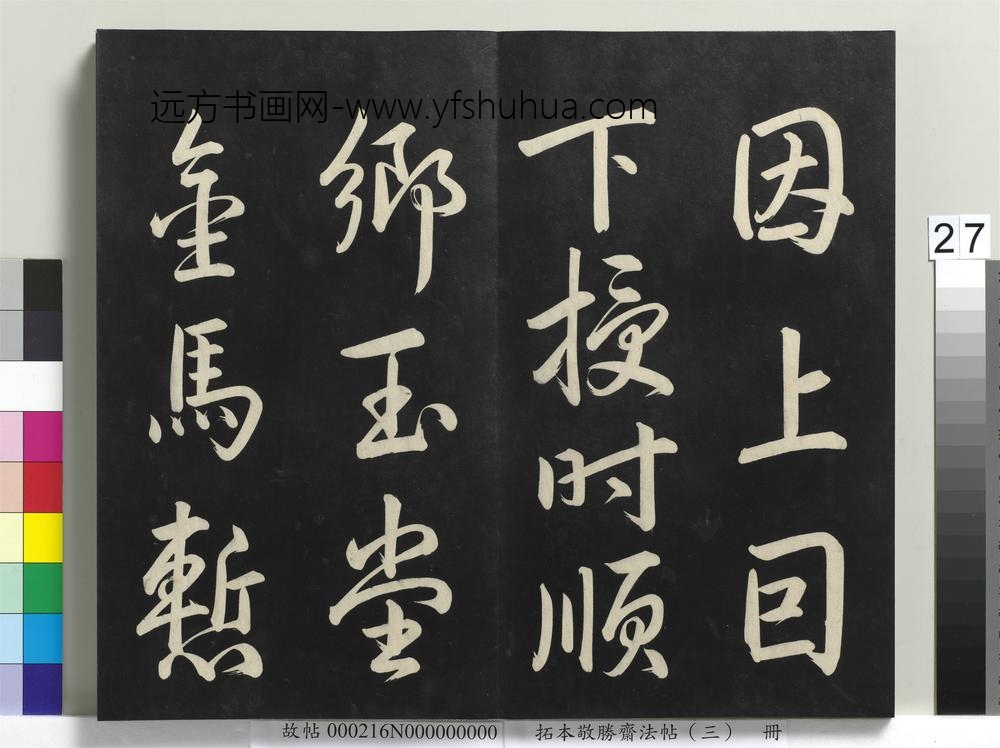 远方书画网-www.yfshuhua.com
因上回
下授时順
鄉玉堂
金馬慙
27
故帖 000216N000000000 拓本敬勝齋法帖（三） 冊